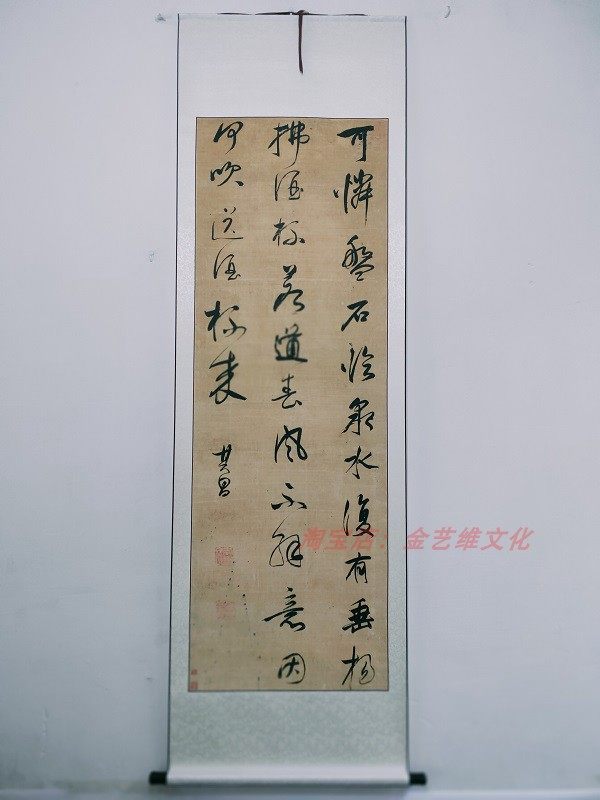 可憐盤石臨泉水復有垂楊
拂酒杯若道春風不解意因
何吹送酒杯來
其昌
淘宝店：金艺维文化